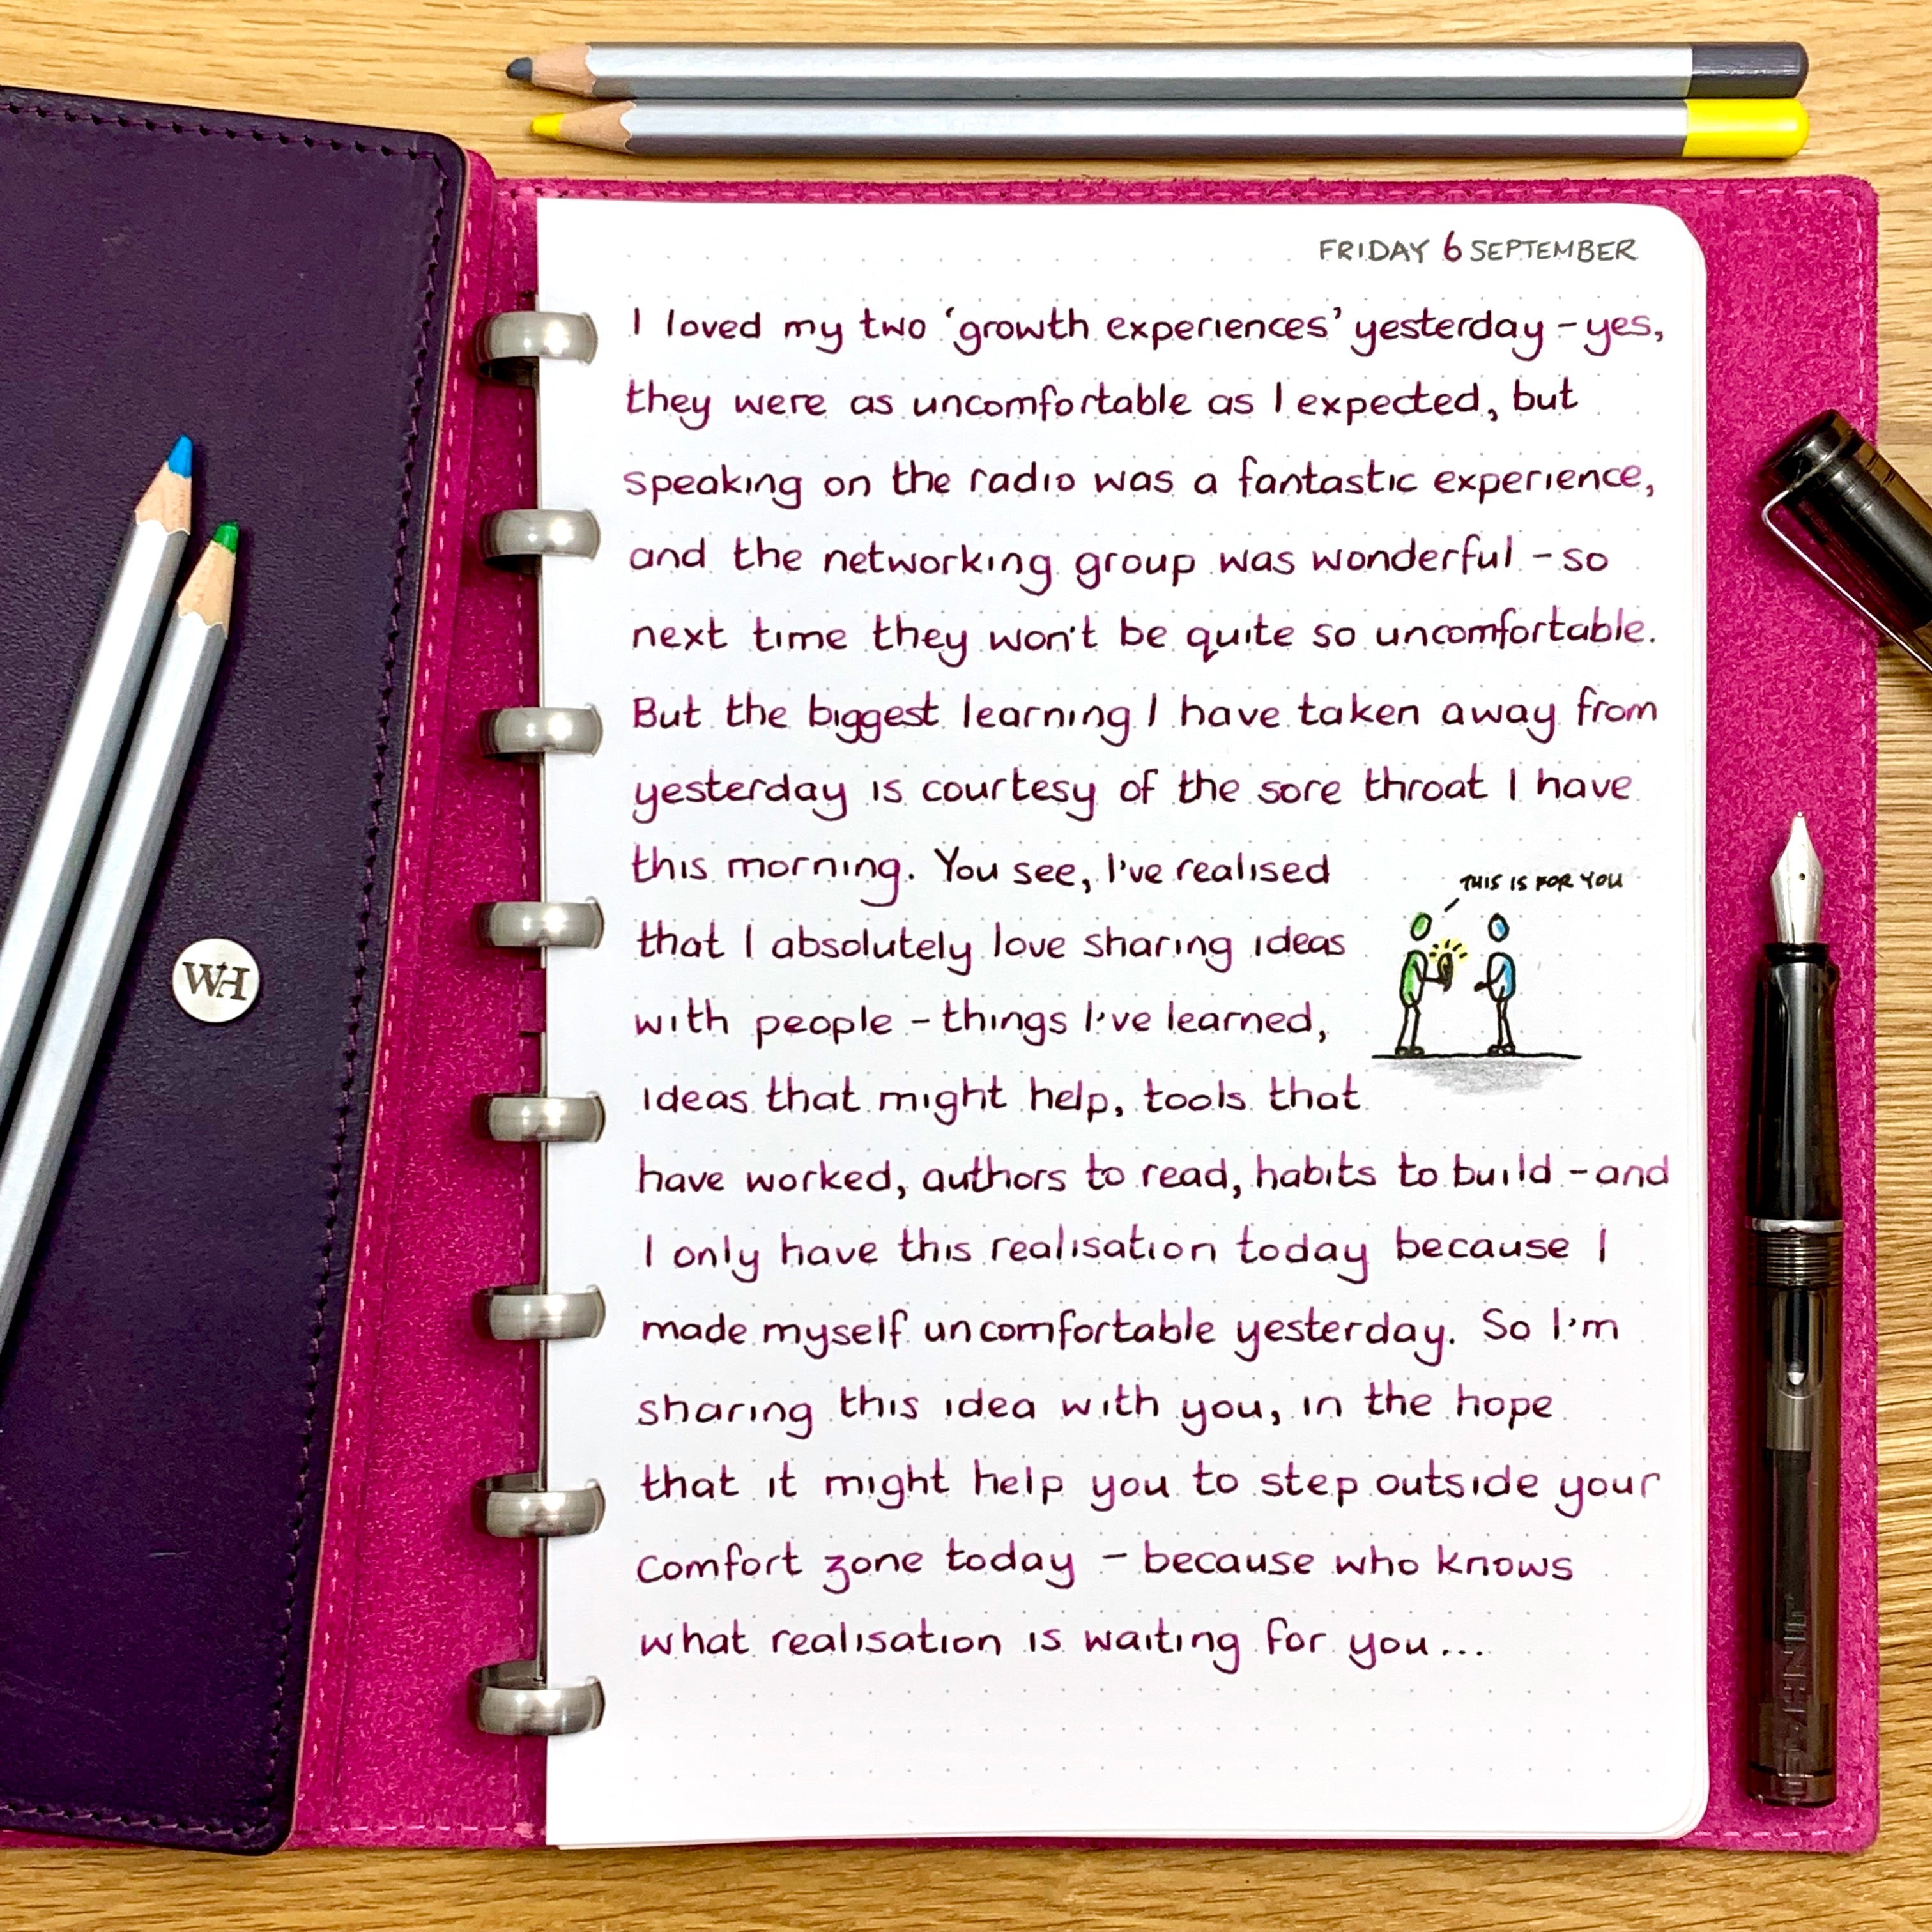 FRIDAY 6 SEPTEMBER
I loved my two ‘growth experiences’ yesterday – yes,
they were as uncomfortable as I expected, but
speaking on the radio was a fantastic experience,
and the networking group was wonderful – so
next time they won't be quite so uncomfortable.
But the biggest learning I have taken away from
yesterday is courtesy of the sore throat I have
this morning. You see, I've realised
THIS IS FOR YOU
that I absolutely love sharing ideas
with people – things I've learned,
ideas that might help, tools that
have worked, authors to read, habits to build – and
I only have this realisation today because I
made myself uncomfortable yesterday. So I'm
sharing this idea with you, in the hope
that it might help you to step outside your
comfort zone today – because who knows
what realisation is waiting for you...
WH
JINHAO